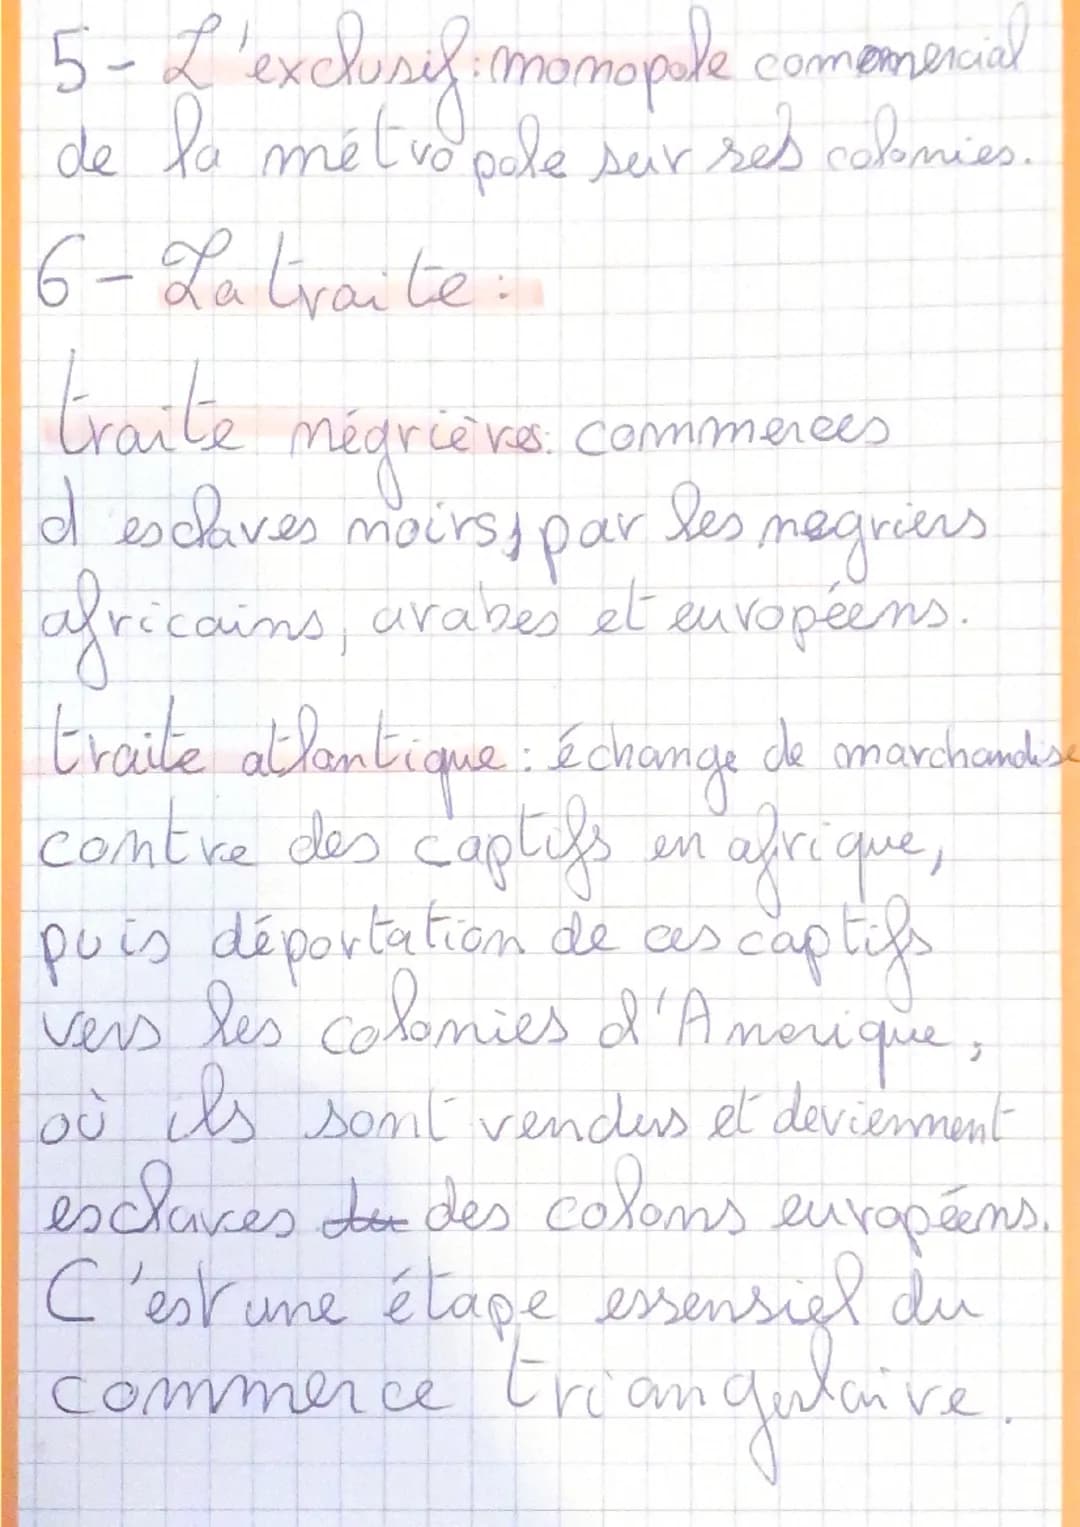 5 - L'exclusif : monopole commercial
de la métropole sur ses colonies.
6 - La traite :
traite négrières : commerces
d'esclaves noirs, par les negriers
africains, arabes et européens.
traite atlantique : échange de marchandise
contre des captifs en afrique,
puis déportation de ces captifs
vers les colonies d'Amerique,
où ils sont vendus et deviennent
esclaves du des colons européens.
C'est une étape essensiel du
commerce triangulaire.